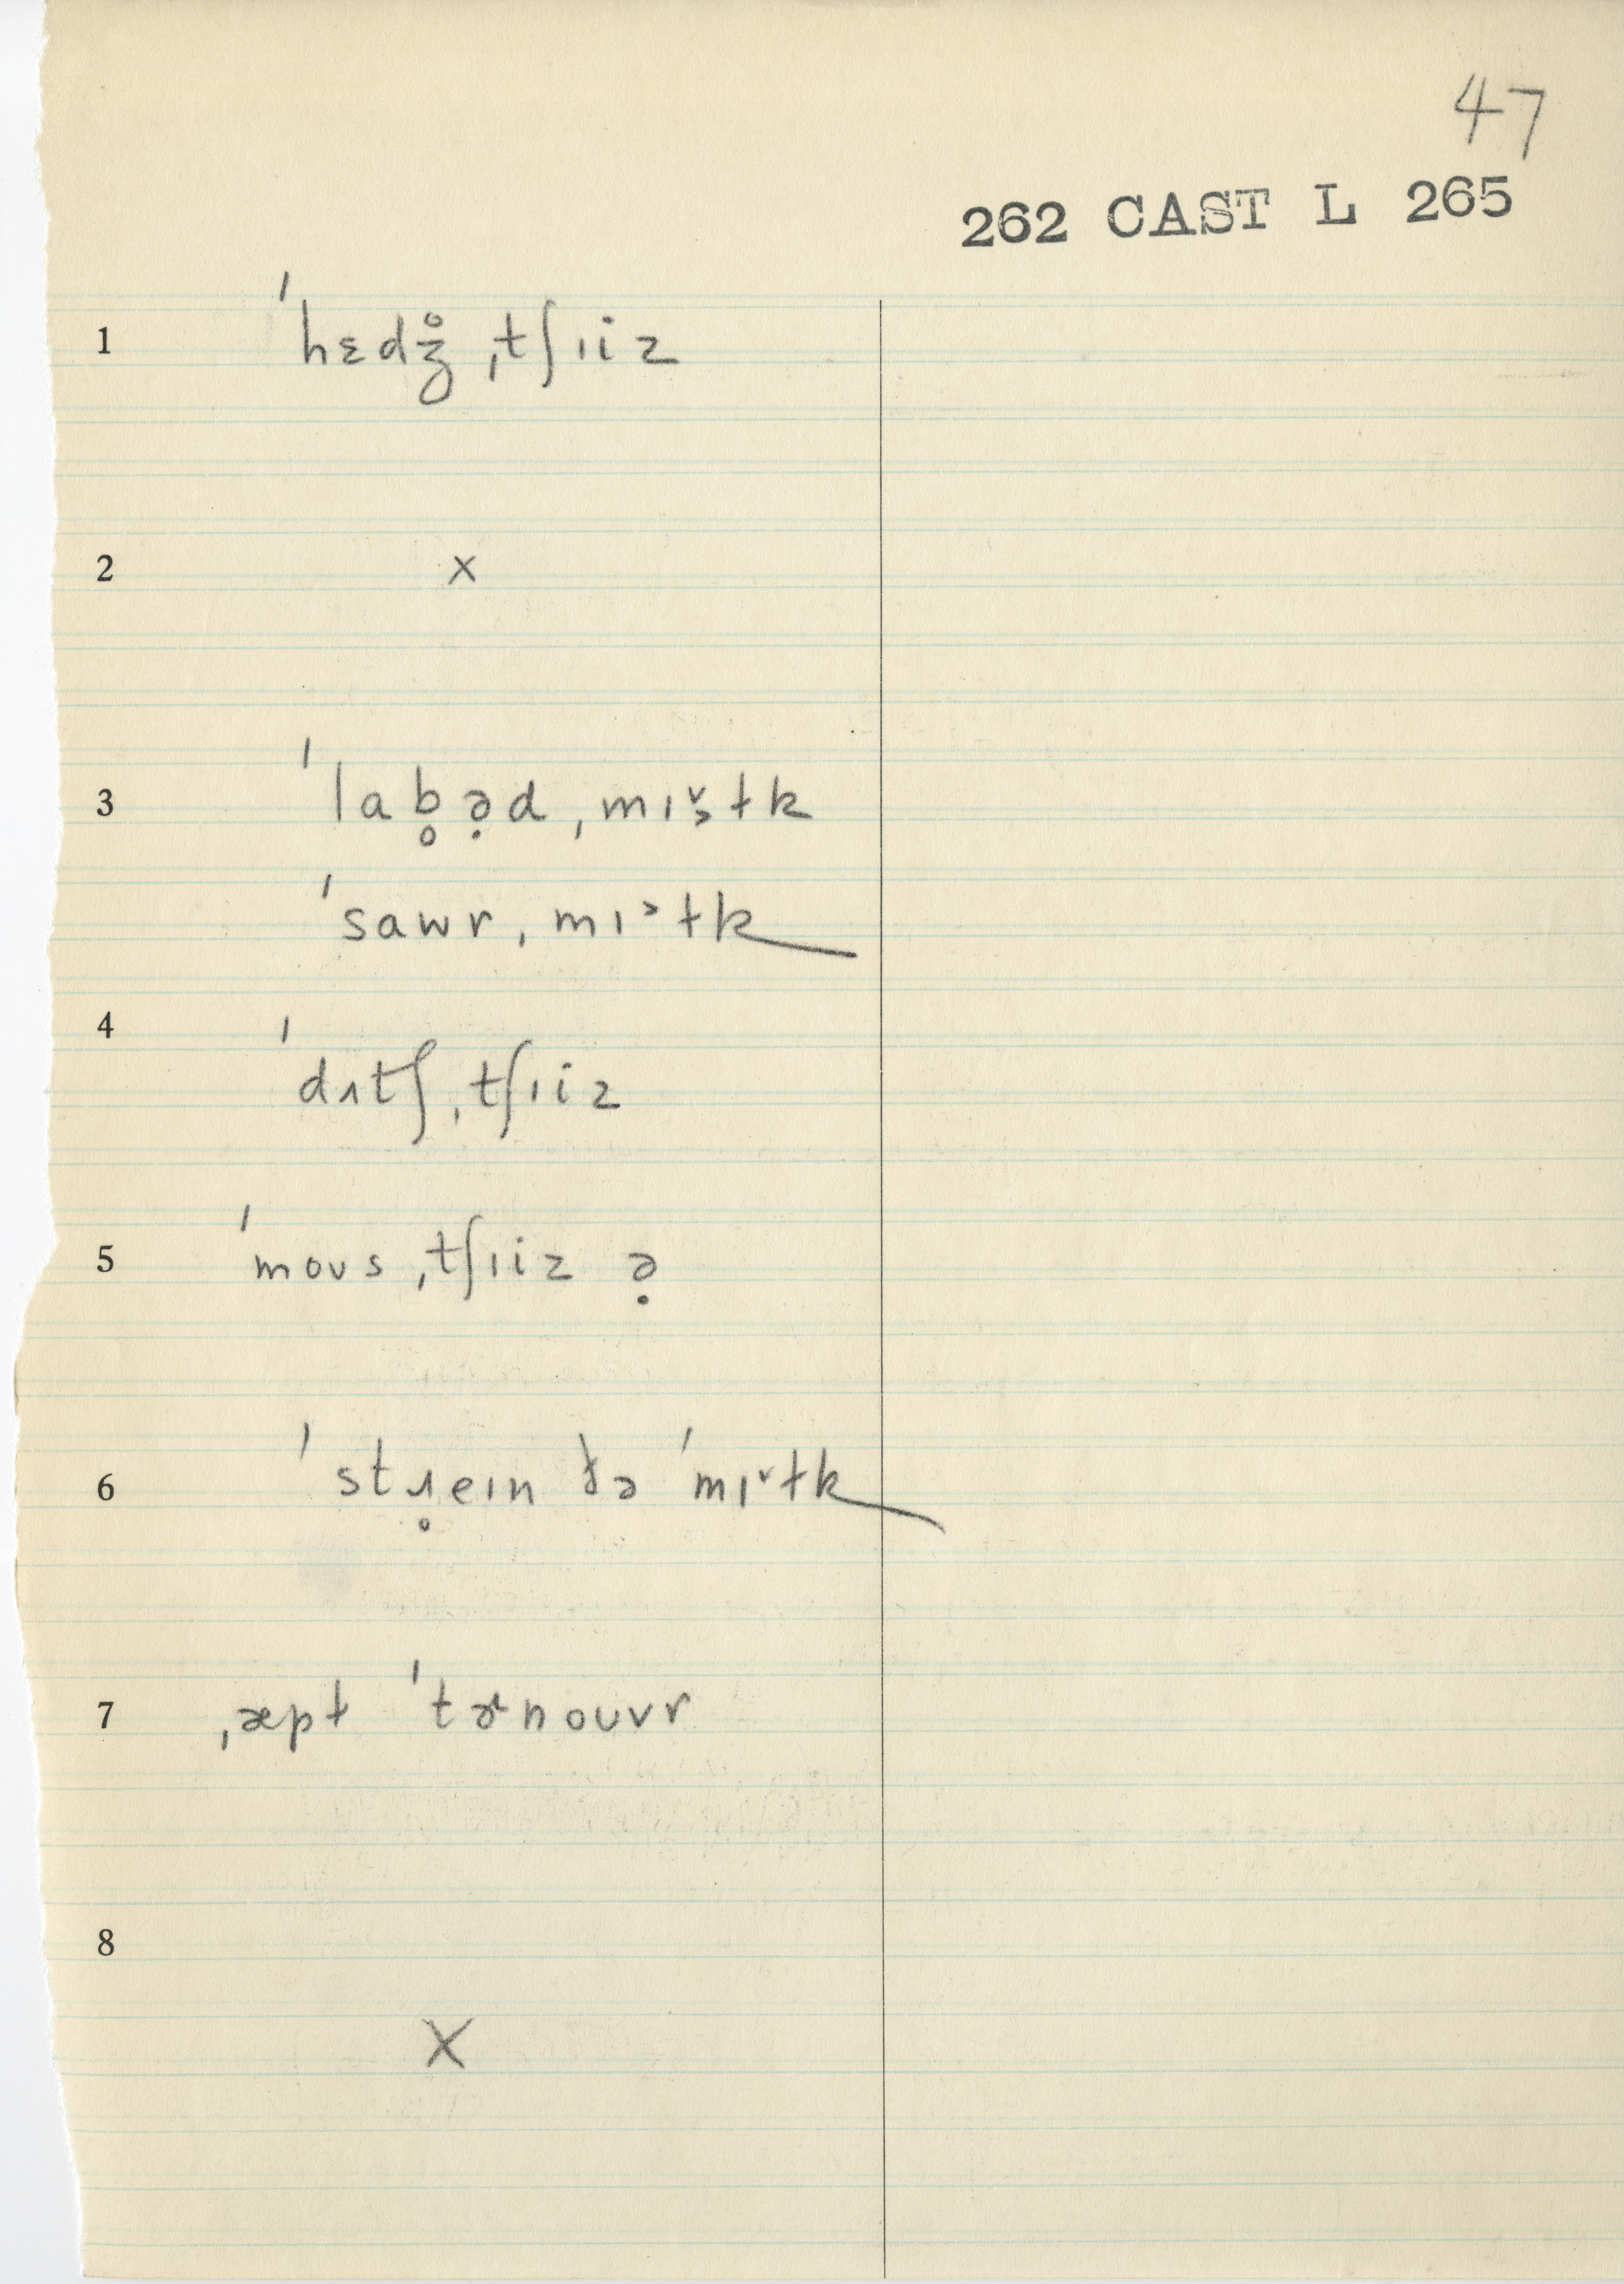 47
262 CAST L 265
1 ˈhɛdʒ̊ ˌtʃɪiz
2 x
3 ˈlab̥ə̣d ˌmɪ˅˃ɫk
ˈsawr ˌmɪ˃ɫk
4 ˈdʌtʃ ˌtʃɪiz
5 ˈmoʊs ˌtʃɪiz ə̣
6 ˈstɹ̥eɪn ðə ˈmɪ˅ɫk
7 ˌæpɫ ˈtɚnoʊvr
8 X